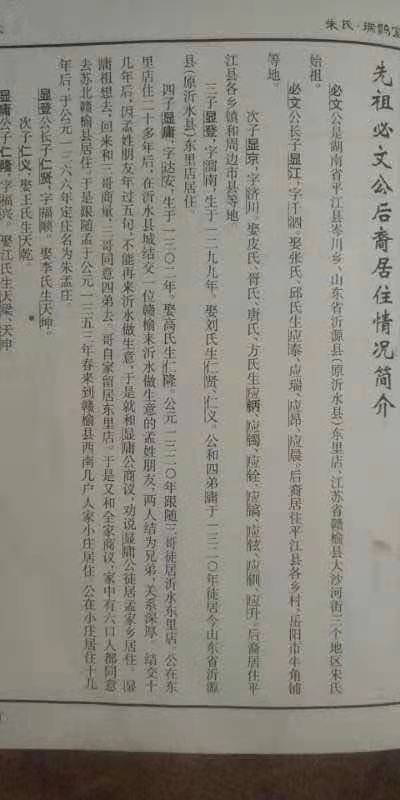 朱氏·瑞鹊堂
先祖必文公后裔居住情况简介
必文公是湖南省平江县岑川乡、山东省沂源县(原沂水县)东里店、江苏省赣榆县大沙河街三个地区朱氏
始祖。
必文公长子显江,字千泗。娶张氏、邱氏生应泰、应瑞、应昂、应晨。后裔居住平江县各乡村、岳阳市牛角铺
等地。
次子显京,字济川。娶皮氏、胥氏、唐氏、方氏生应炳、应镯、应铨、应镐、应铉、应钏、应升。后裔居住平
江县各乡镇和周边市县等地。
三子显登,字润南,生于一二九九年。娶刘氏生仁贤、仁义。公和四弟庸于一三二〇年徒居今山东省沂源
县(原沂水县)东里店居住。
四子显庸,字达安,生于一三〇二年。娶高氏生仁隆。公元一三二〇年跟随三哥徒居沂水东里店。公在东
里店住二十多年后,在沂水县城结交一位赣榆来沂水做生意的孟姓朋友,两人结为兄弟,关系深厚。结交十
几年后,因孟姓朋友年过五旬,不能再来沂水做生意,于是就和显庸公商议,劝说显庸公徒居孟家乡居住。显
庸祖想去,回来和三哥商量,三哥同意四弟去。哥自家留居东里店。于是又和全家商议,家中有六口人都同意
去苏北赣榆县居住。于是跟随孟于公元一三五三年春来到赣榆县西南几户人家小庄居住。公在小庄居住十几
年后,于公元一三六六年定庄名为朱孟庄。
显登公长子仁贤,字福顺。娶李氏生天坤。
次子仁义,娶王氏生天乾。
显庸公子仁隆,字福兴。娶江氏生天梁、天坤